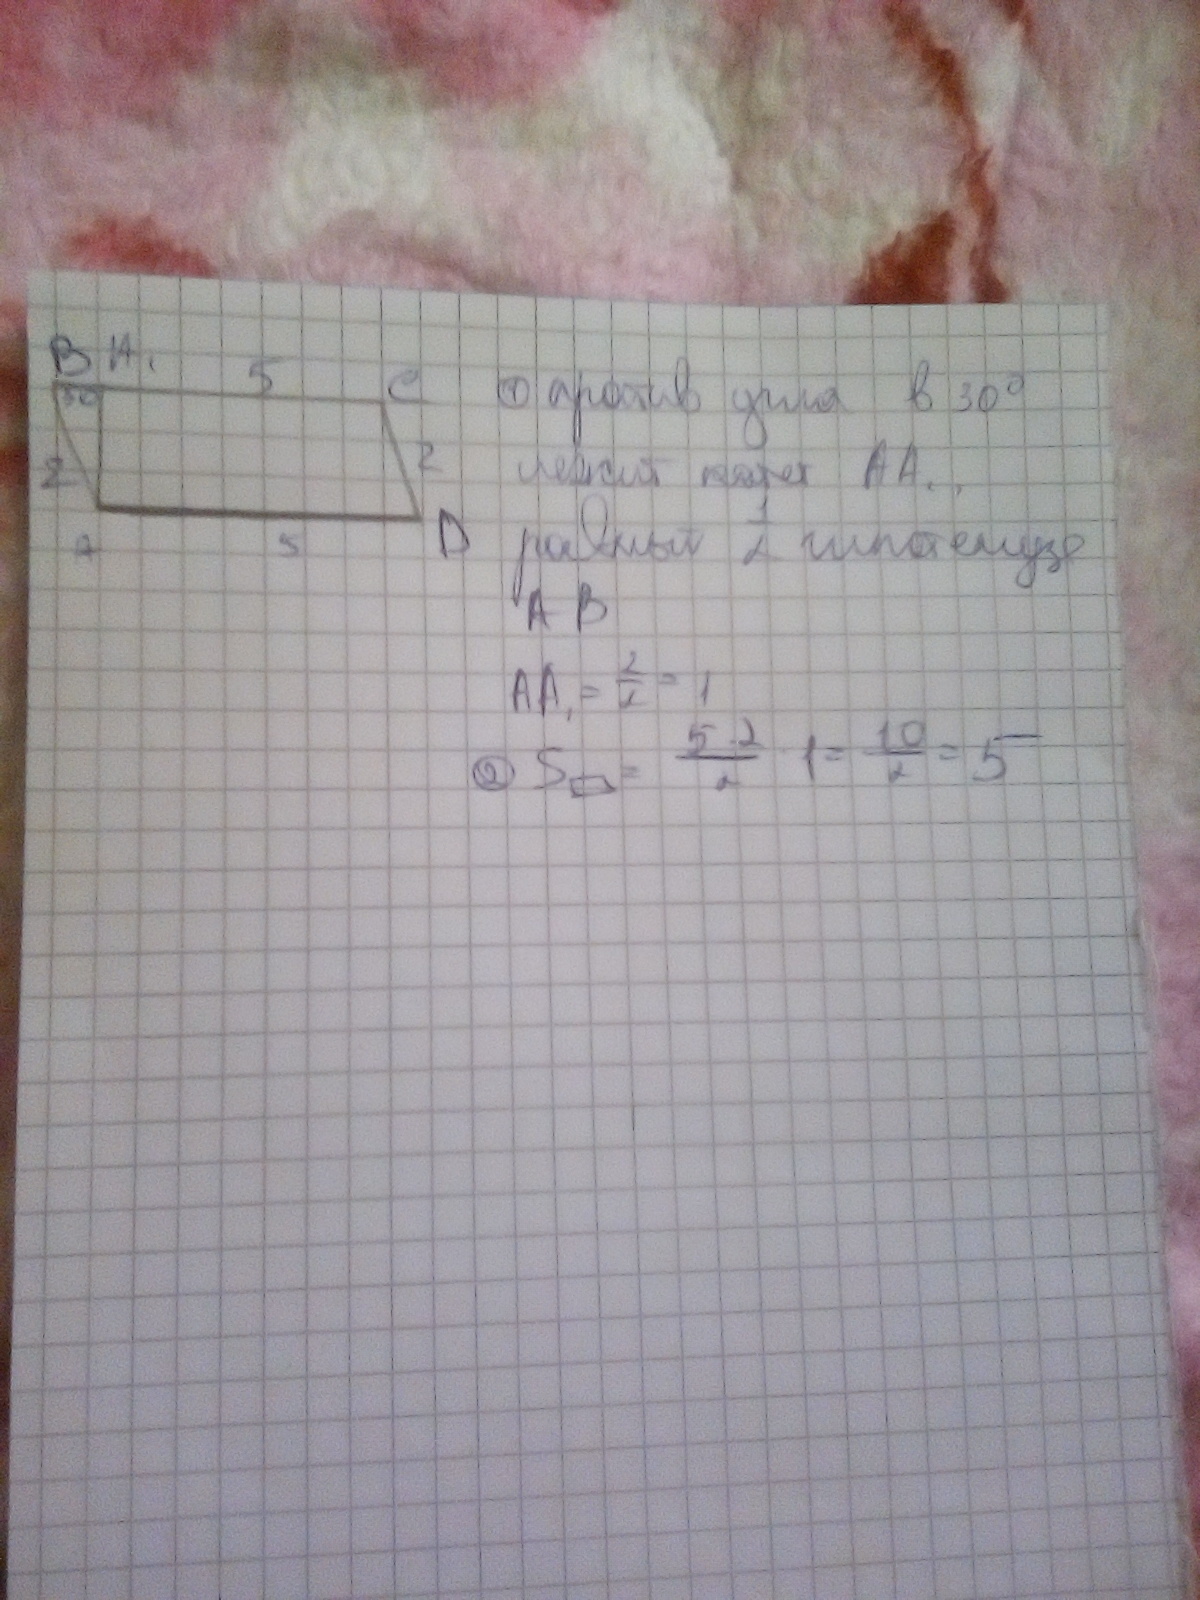 B A₁ 5 C
30
2 2
A 5 D
① против угла в 30°
лежит катет AA₁,
равный 1/2 гипотенузе
AB
AA₁ = 2/2 = 1
② S▱ = 5·2/2 · 1 = 10/2 = 5